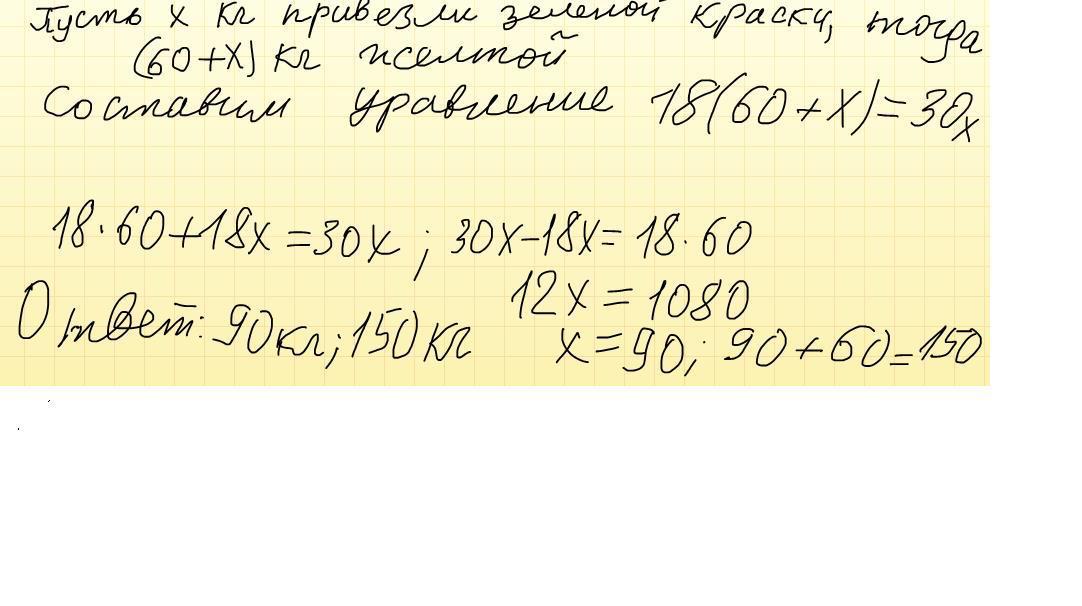 Пусть х кг привезли зеленой краски, тогда
(60+х) кг желтой
Составим уравнение 18(60+х)=30х
18·60+18х=30х ; 30х-18х=18·60
12х=1080
Ответ: 90кг; 150кг х=90; 90+60=150